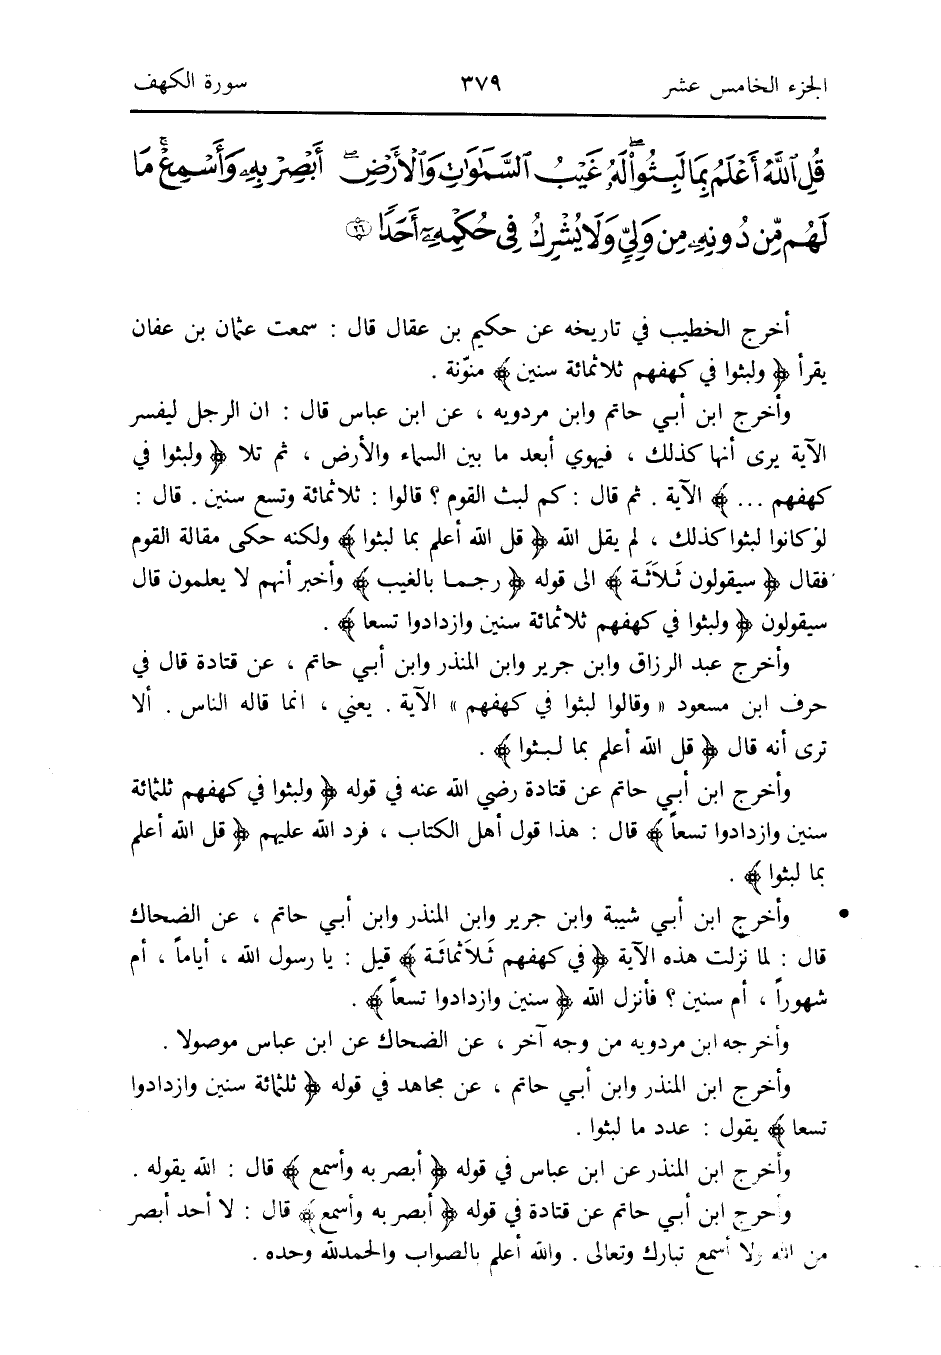 الجزء الخامس عشر
٣٧٩
سورة الكهف
قُلِ ٱللَّهُ أَعْلَمُ بِمَا لَبِثُوا۟ ۖ لَهُۥ غَيْبُ ٱلسَّمَـٰوَٰتِ وَٱلْأَرْضِ ۖ أَبْصِرْ بِهِۦ وَأَسْمِعْ ۚ مَا
لَهُم مِّن دُونِهِۦ مِن وَلِىٍّ وَلَا يُشْرِكُ فِى حُكْمِهِۦٓ أَحَدًا ﴿٢٦﴾
أخرج الخطيب في تاريخه عن حكيم بن عقال قال : سمعت عثمان بن عفان
يقرأ ﴿ ولبثوا في كهفهم ثلاثمائة سنين ﴾ منوّنة .
وأخرج ابن أبي حاتم وابن مردويه ، عن ابن عباس قال : ان الرجل ليفسر
الآية يرى أنها كذلك ، فيهوي أبعد ما بين السماء والأرض ، ثم تلا ﴿ ولبثوا في
كهفهم ... ﴾ الآية . ثم قال : كم لبث القوم ؟ قالوا : ثلاثمائة وتسع سنين . قال :
لو كانوا لبثوا كذلك ، لم يقل الله ﴿ قل الله أعلم بما لبثوا ﴾ ولكنه حكى مقالة القوم
فقال ﴿ سيقولون ثَلاَثَة ﴾ الى قوله ﴿ رجما بالغيب ﴾ وأخبر أنهم لا يعلمون قال
سيقولون ﴿ ولبثوا في كهفهم ثلاثمائة سنين وازدادوا تسعا ﴾ .
وأخرج عبد الرزاق وابن جرير وابن المنذر وابن أبي حاتم ، عن قتادة قال في
حرف ابن مسعود « وقالوا لبثوا في كهفهم » الآية . يعني ، انما قاله الناس . ألا
ترى أنه قال ﴿ قل الله أعلم بما لبثوا ﴾ .
وأخرج ابن أبي حاتم عن قتادة رضي الله عنه في قوله ﴿ ولبثوا في كهفهم ثلثمائة
سنين وازدادوا تسعاً ﴾ قال : هذا قول أهل الكتاب ، فرد الله عليهم ﴿ قل الله أعلم
بما لبثوا ﴾ .
• وأخرج ابن أبي شيبة وابن جرير وابن المنذر وابن أبي حاتم ، عن الضحاك
قال : لما نزلت هذه الآية ﴿ في كهفهم ثَلاَثمَائَة ﴾ قيل : يا رسول الله ، أياماً ، أم
شهوراً ، أم سنين ؟ فأنزل الله ﴿ سنين وازدادوا تسعاً ﴾ .
وأخرجه ابن مردويه من وجه آخر ، عن الضحاك عن ابن عباس موصولا .
وأخرج ابن المنذر وابن أبي حاتم ، عن مجاهد في قوله ﴿ ثلثمائة سنين وازدادوا
تسعا ﴾ يقول : عدد ما لبثوا .
وأخرج ابن المنذر عن ابن عباس في قوله ﴿ أبصر به وأسمع ﴾ قال : الله يقوله .
وأخرج ابن أبي حاتم عن قتادة في قوله ﴿ أبصر به وأسمع ﴾ قال : لا أحد أبصر
من الله ولا أسمع تبارك وتعالى . والله أعلم بالصواب والحمدلله وحده .